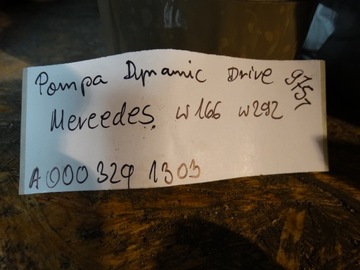 Pompa Dynamic Drive 9751
Mercedes w166 w292
A000 329 1303